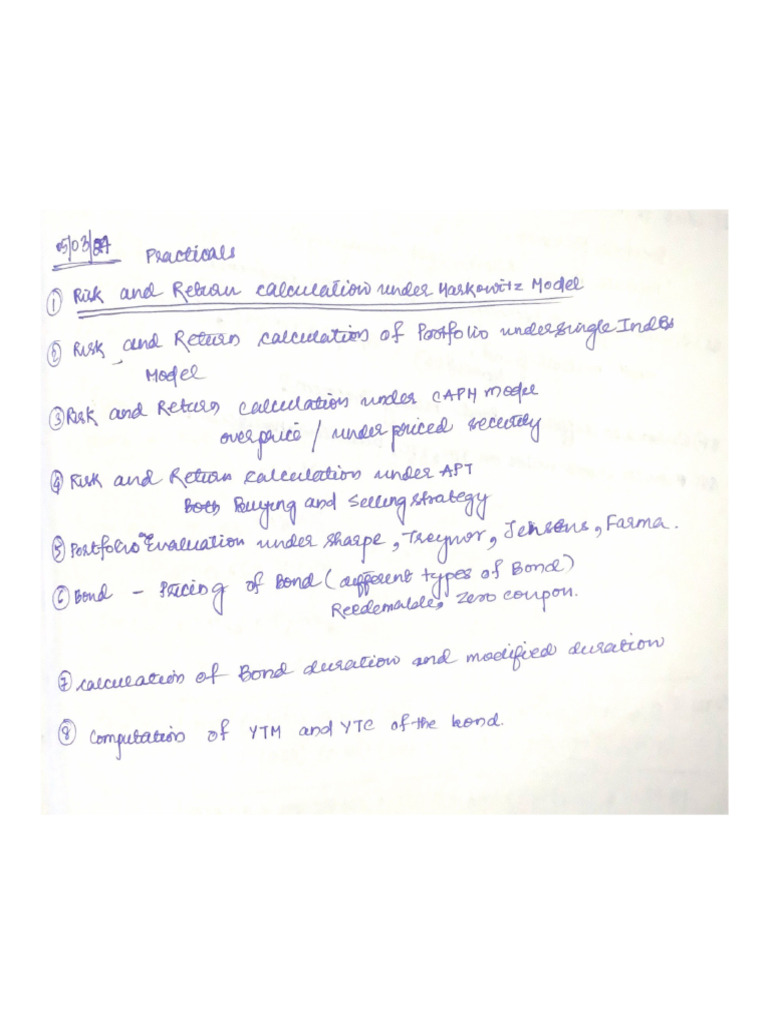 05/03/24 Practicals
① Risk and Return calculation under Markowitz Model
② Risk and Return calculation of Portfolio under single Index
Model
③ Risk and Return calculation under CAPM model
overprice / under priced security
④ Risk and Return calculation under APT
Both Buying and Selling strategy
⑤ Portfolio Evaluation under Sharpe, Treynor, Jensens, Farma.
⑥ Bond - Pricing of Bond (different types of Bond)
Reedemable, Zero coupon.
⑦ calculation of Bond duration and modified duration
⑧ Computation of YTM and YTC of the bond.